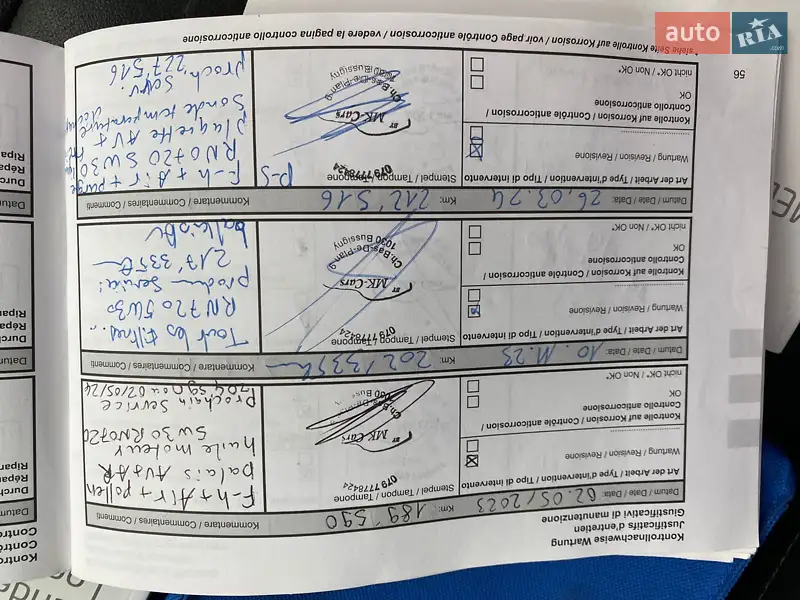 Kontrollnachweise Wartung
Justificatifs d'entretien
Giustificativi di manutenzione
Datum / Date / Data: 02.05/2023
Km: 189'590
Kommentare / Commentaires / Commenti
Art der Arbeit / Type d'intervention / Tipo di intervento
Stempel / Tampon / Timbro
Wartung / Revisione
Kontrolle auf Korrosion / Contrôle anticorrosion /
Controllo anticorrosione
OK
nicht OK* / Non OK*
079 7778424
BY
MK-Cars
Ch.Bas-De-Plan 9
1030 Bus
F-h + Air + pollen
palais AV+AR
huile moteur
5W30 RN0720
Prochain Service
02/05/24
Datum / Date / Data: 10.11.23
Km: 202'335
Kommentare / Commentaires / Commenti
Art der Arbeit / Type d'intervention / Tipo di intervento
Stempel / Tampone
Wartung / Revisione
Kontrolle auf Korrosion / Contrôle anticorrosion /
Controllo anticorrosione
OK
nicht OK* / Non OK*
079 7778424
BY
MK-Cars
Ch.Bas-De-Plan 9
1030 Bussigny
Tout les filtres
RN720 5W30
Service:
217'335
Datum / Date / Data: 26.03.24
Km: 212'516
Kommentare / Commentaires / Commenti
Art der Arbeit / Type d'intervention / Tipo di intervento
Stempel / Tampone
Wartung / Revisione
Kontrolle auf Korrosion / Contrôle anticorrosion /
Controllo anticorrosione
OK
nicht OK* / Non OK*
P-S
079 7778424
BY
MK-Cars
Ch.Bas-De-Plan 9
1030 Bussigny
F-h + Air + purge
RN0720 5W30
plaquette AV +
Sonde température
proch Serv:
227'516
* siehe Seite Kontrolle auf Korrosion / voir page Contrôle anticorrosion / vedere la pagina controllo anticorrosione
56
auto RIA
.com